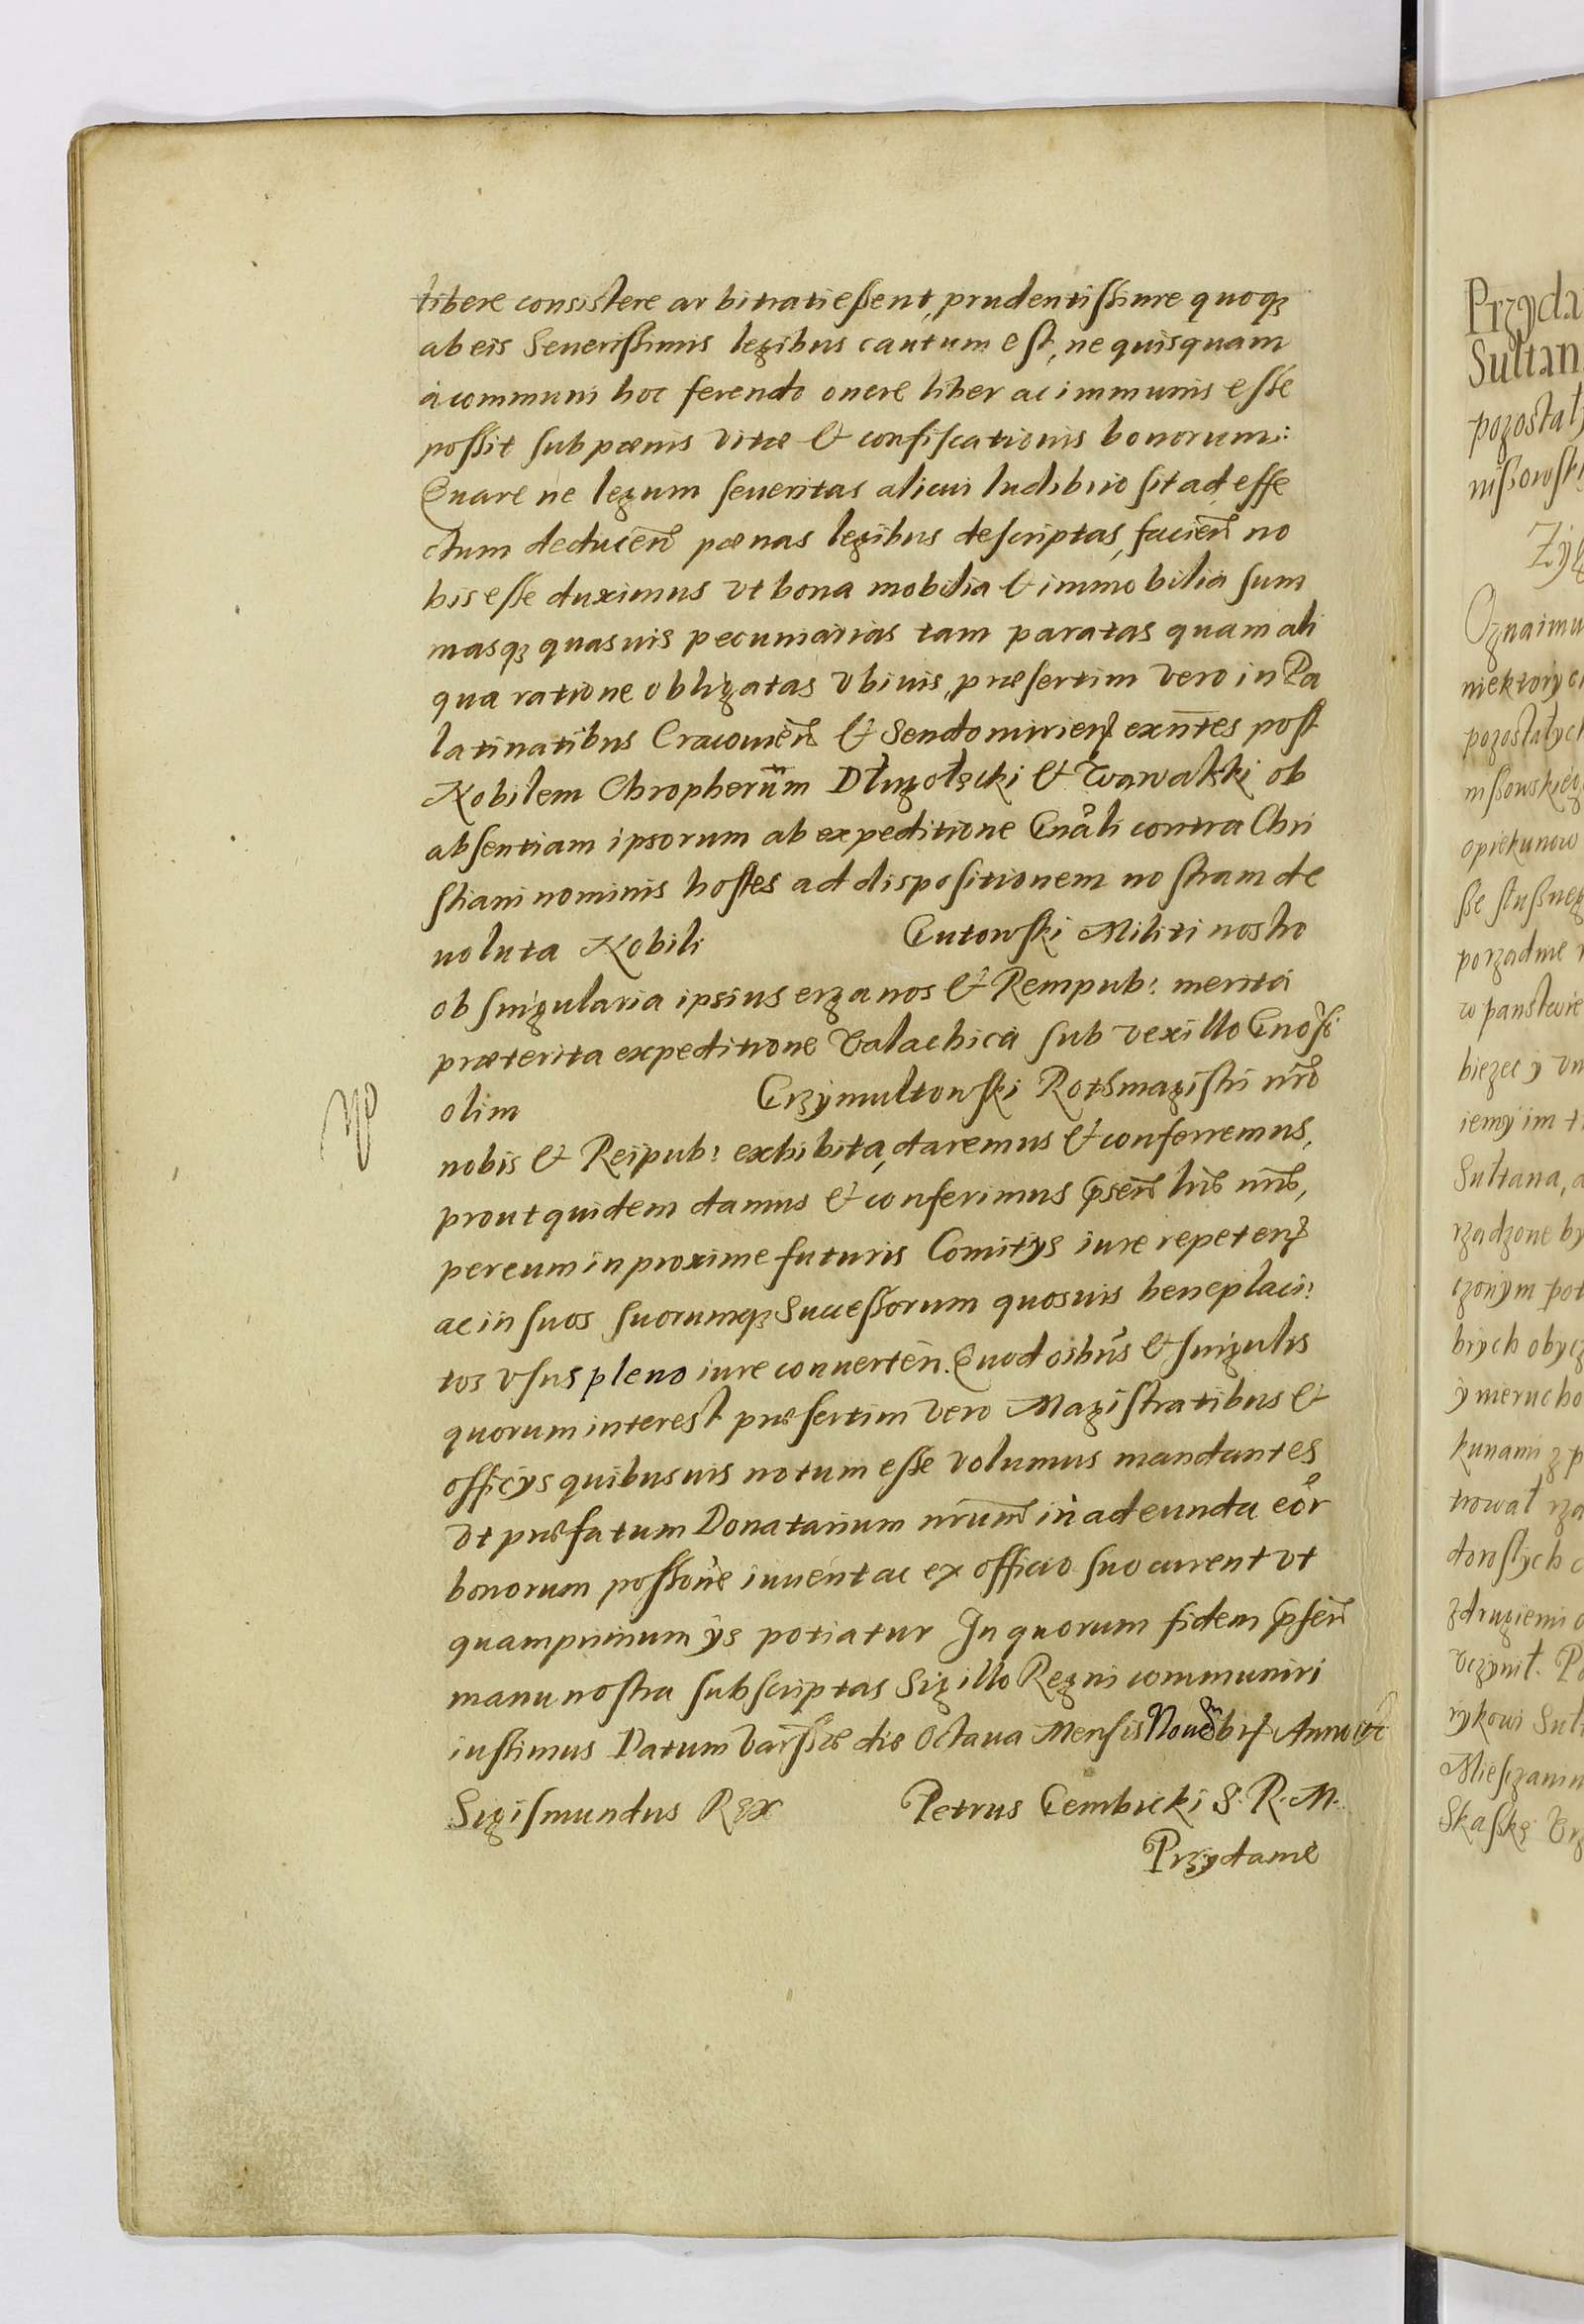 libere consistere arbitrati eßent, prudentißime quoqꝫ
ab eis Seuerißimis legibus cautum est, ne quisquam
à communi hoc ferendo onere liber ac immunis esse
poßit sub pœnis vitæ & confiscationis bonorum:
Quare ne legum seueritas alicui ludibrio sit ad effe
ctum deducen̄ pœnas legibus descriptas, facien̄ no
bis esse duximus vt bona mobilia & immobilia sum
masqꝫ quasuis pecuniarias tam paratas quam ali
qua ratione obligatas vbiuis, præsertim vero in Pa
latinatibus Cracouien̄ & Sendomirien̄ exn̄tes post
Nobilem Chropherūm & ob
absentiam ipsorum ab expeditione Gn̄ali contra Chri
stiani nominis hostes ad dispositionem nostram de
uoluta Nobili Gutowski Militi nostro
ob singularia ipsius erga nos & Rempub: merita
præterita expeditione Valachica sub vexillo Gnosi
olim Grzymultowski Rothmagistri nr̄o
nobis & Reipub: exhibita, daremus & conferremus,
prout quidem damus & conferimus p̄sen̄ lr̄is nr̄is,
per eum in proxime futuris Comitys iure repeten̄
ac in suos suorumqꝫ Succeßorum quosuis beneplaci:
tos vsus pleno iure conuerten. Quod oībus & singulis
quorum interest præsertim vero Magistratibus &
officys quibusuis notum esse volumus mandantes
vt præfatum Donatarium nr̄um in adeunda eor
bonorum poßōne iuuent ac ex officio suo curent vt
quamprimum ys potiatur In quorum fidem p̄sen̄
manu nostra subscriptas Sigillo Regni communiri
iußimus Datum Varßæ die Octaua Mensis Nouēbris Anno etc
Sigismundus Rex Petrus Gembicki S. R. M.
Przydanie
Przyda
Sułtan
pozostał
Oznaimu
niektorych
pozostałych
opiekunow
porzadnie
w panstwie
iemy im
Sułtana, a
rzadzone by
czonym pot
brych obycz
y nierucho
kunami z p
rowal rza
doroslych
uczynił. Po
rykowi Suł
Miesczanin